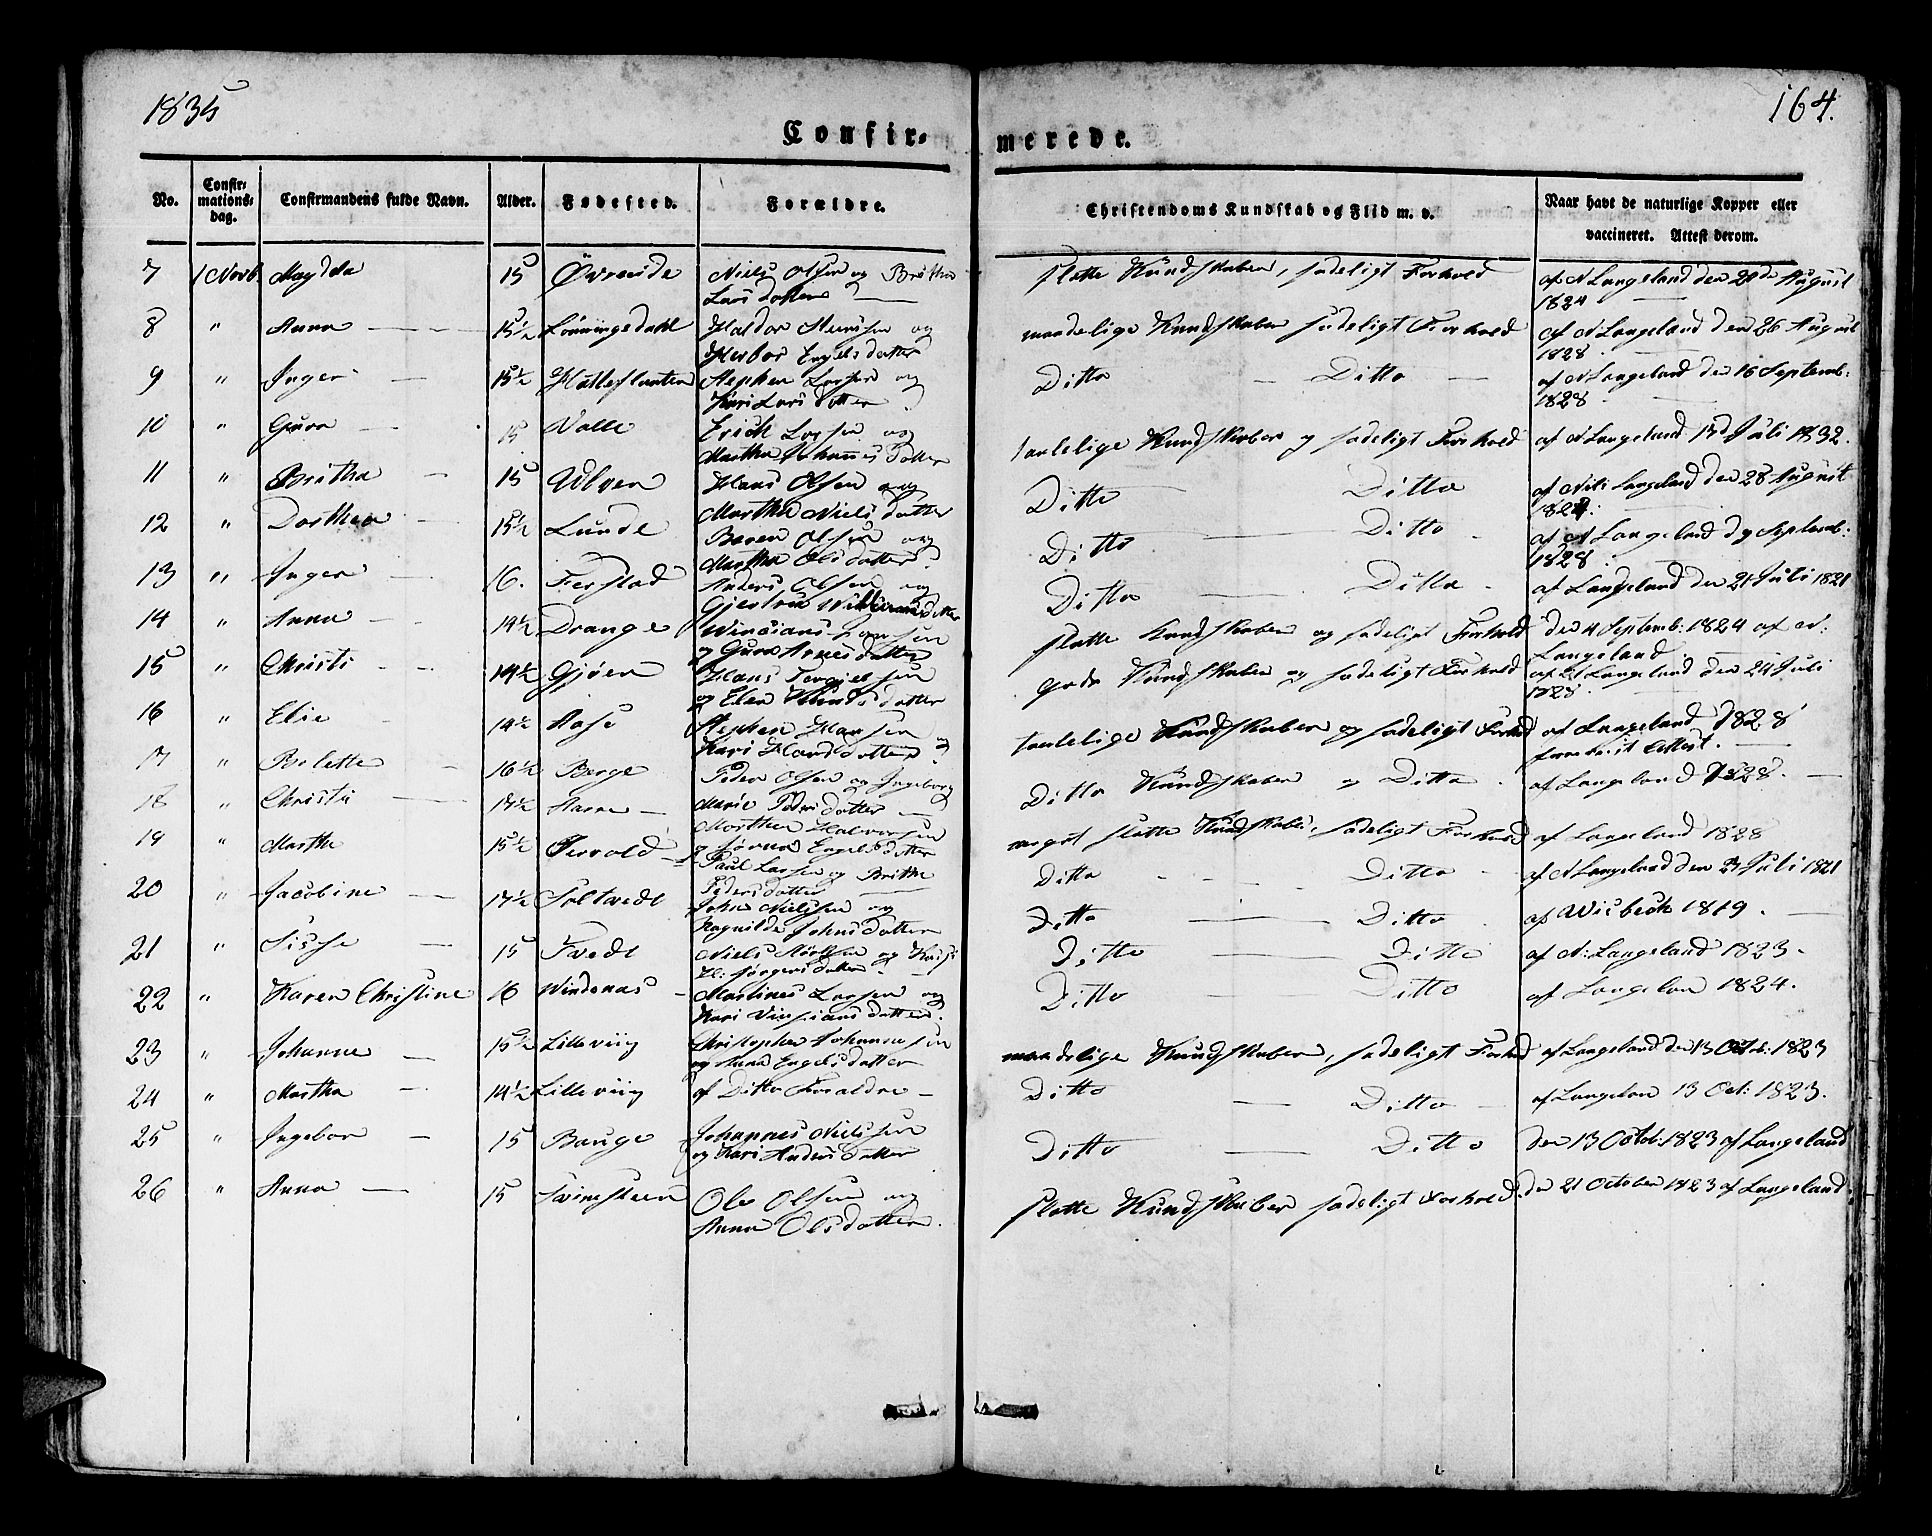 1835
164.
Confir-
merede.
No.
Confir-
mations-
dag.
Confirmandens fulde Navn.
Alder.
Fødested.
Forældre.
Christendoms Kundskab og Flid m. v.
Naar havt de naturlige Kopper eller
vaccineret. Attest derom.
7 1 Novb. Magdela 15 Øvreeide Niels Olsen og Britha slette Kundskaber, sædeligt Forhold af N Langeland den 28de August
Larsdatter — 1824 —
8 " Anna — 15½ Lønningsdahl Haldor og maadelige Kundskaber sædeligt Forhold af N Langeland den 26 August
Herbor Engelsdatter 1828.
9 " Inger — 15½ Stephen Larsen og Ditto — Ditto — af N Langeland den 16 Septemb:
Kari Larsdatter 1828 —
10 " Guro — 15 Valle Erich Larsen og taalelige Kundskaber og sædeligt Forhold af N Langeland 13 Juli 1832.
Martha Johannes Datter
11 " Britha — 15 Ulven Hans Olsen og Ditto — Ditto af Langeland den 28 August
Martha Niels datter 182
12 " Dorthea — 15½ Lunde Olsen og Ditto — Ditto af N Langeland d 9 Septemb:
Martha Olsdatter. 1828.
13 " Inger — 16. Ferstad Anders Olsen og Ditto — Ditto — af Langeland den 21 Juli 1821
Gjertrud
14 " Anna — 14½ Drange slette Kundskaber og sædeligt Forhold den 4 Septemb: 1824 af N:
og Guro Arnesdatter Langeland.
15 " Christi — 14½ Gjøen Hans Torgielsen gode Kundskaber og sædeligt Forhold af N Langeland den 24 Juli
og Elen datter 1828.
16 " Elie 14½ Aase Stephen Hansen taalelige Kundskaber og sædeligt Forhold af Langeland 1828
Kari datter Attest. —
17 " Bolette — 16½ Berge Peder Olsen og Ingeborg Ditto Kundskaber og Ditto af Langeland 1828. —
Marie Peders datter —
18 " Christi — 17½ — Morthen Halvorsen noget slette Kundskaber, sædeligt Forhold af Langeland 1828
Engelsdatter
19 " Martha 15½ Paul Larsen og Britha Ditto — Ditto — af N Langeland den 21 Juli 1821
Peders datter
20 " Jacobine — 17½ Soltvedt John Nielssen og Ditto — Ditto af Wisbech 1819. —
Ragnilde Johnsdatter
21 " Sisse — 15 Tvedt Niels og Ditto Ditto af N: Langeland 1823.
datter —
22 " Karen Christine 16 Vindenæs — Martines Larsen og Ditto — Ditto af Langelan 1824.
Kari datter.
23 " Johanne — 15½ Lilleviig Christopher Johannesen maadelige Kundskaber, sædeligt Forhold af Langeland den 13 Octob: 1823
og Anna Engelsdatter
24 " Martha — 14½ Lilleviig af Ditto Forældre — Ditto — Ditto — af Langelan 13 Oct: 1823.
25 " Ingebor — 15 Bauge Johannes Nielssen Ditto — Ditto den 13 Octob: 1823 af Langeland
og Kari Anders Datter
26 " Anna — 15 Ole Olsen og slette Kundskaber sædeligt Forhold. den 21 October 1823 af Langeland
Anna Olsdatter.